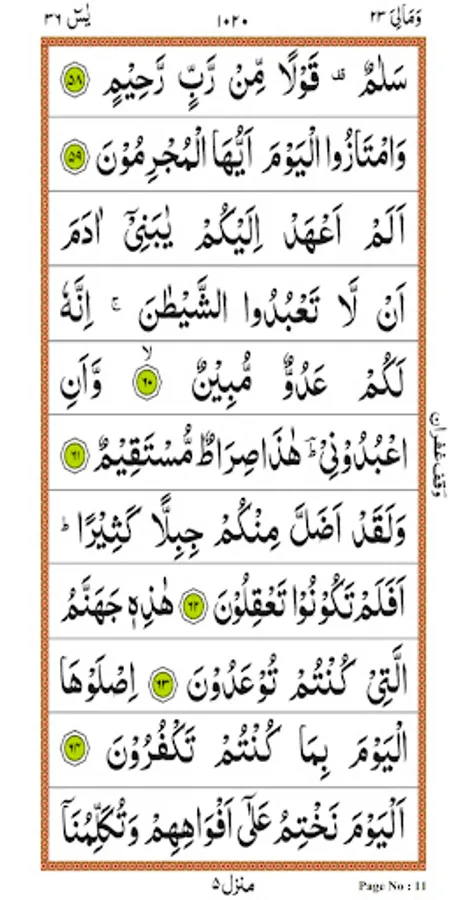 وَمَالِیَ ۲۳
۱۰۲۰
یٰسٓ ۳۶
سَلٰمٌ ۟ قَوْلًا مِّنْ رَّبٍّ رَّحِیْمٍ ۵۸
وَامْتَازُوا الْیَوْمَ اَیُّهَا الْمُجْرِمُوْنَ ۵۹
اَلَمْ اَعْهَدْ اِلَیْكُمْ یٰبَنِیْۤ اٰدَمَ
اَنْ لَّا تَعْبُدُوا الشَّیْطٰنَ ۚ اِنَّهٗ
لَكُمْ عَدُوٌّ مُّبِیْنٌ ۙ۶۰ وَّاَنِ
اعْبُدُوْنِیْ ؔؕ هٰذَا صِرَاطٌ مُّسْتَقِیْمٌ ۶۱
وَلَقَدْ اَضَلَّ مِنْكُمْ جِبِلًّا كَثِیْرًا ؕ
اَفَلَمْ تَكُوْنُوْا تَعْقِلُوْنَ ۶۲ هٰذِهٖ جَهَنَّمُ
الَّتِیْ كُنْتُمْ تُوْعَدُوْنَ ۶۳ اِصْلَوْهَا
الْیَوْمَ بِمَا كُنْتُمْ تَكْفُرُوْنَ ۶۴
اَلْیَوْمَ نَخْتِمُ عَلٰۤی اَفْوَاهِهِمْ وَتُكَلِّمُنَاۤ
وقف غفران
منزل ۵
Page No : 11